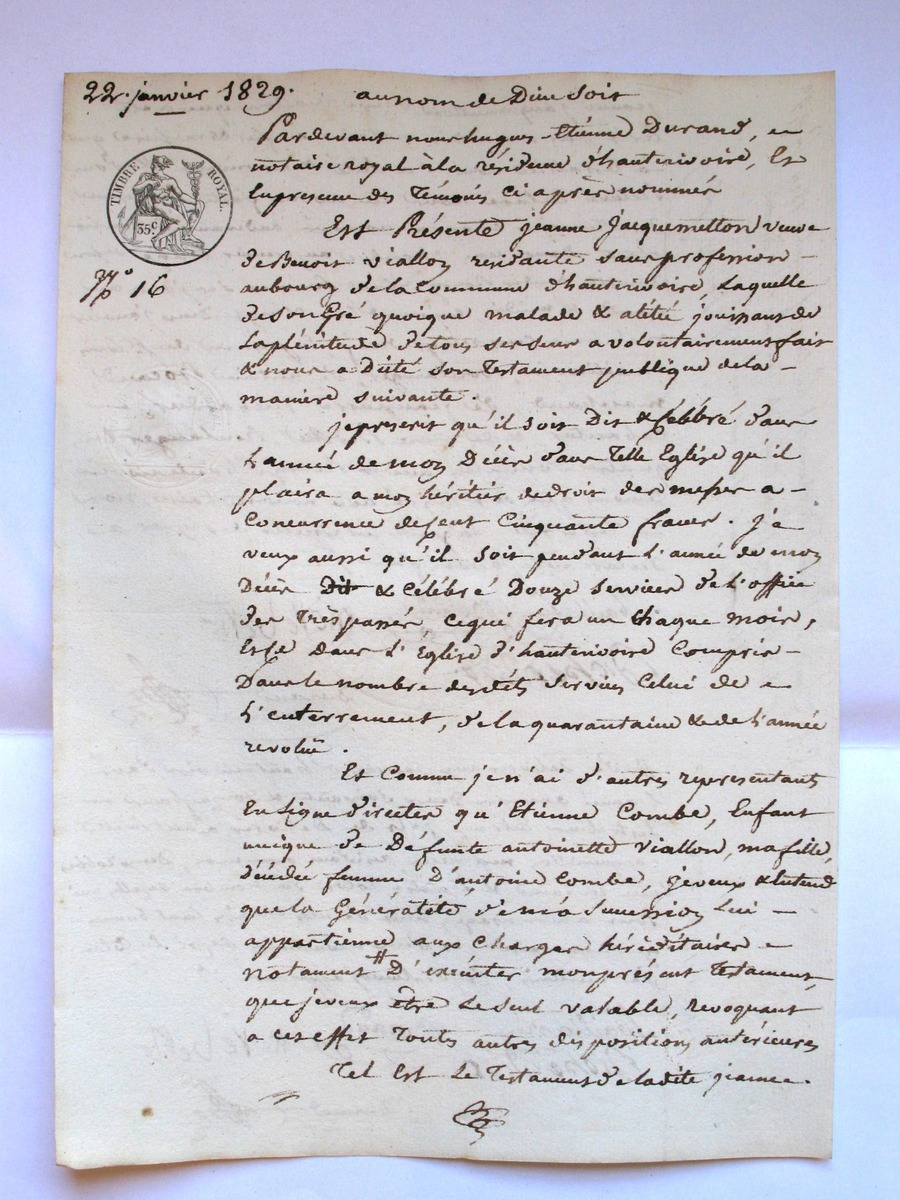 22. janvier 1829.
au nom de Dieu soit
TIMBRE ROYAL.
35c
No 16
Pardevant nous hugues-Etiénne Durand,
notaire royal à la résidence d'hauterivoire, Et
En presence des Témoins ci après nommés
Est Présente jeanne jacquemetton veuve
de Benoit viallon residante sans profession -
au bourg de la commune d'hauterivoire, Laquelle
de son Gré quoique malade & alitée jouissant de
la plénitude de tous ses sens a volontairement fait
& nous a dicté son Testament publique de la -
maniere suivante.
je prescrit qu'il soit Dit & Célébré dans
L'année de mon Décès dans Telle Eglise qu'il
plaira a mon héritier de droit des messes a -
concurrence de Cent Cinquante francs. Je
veux aussi qu'il soit pendant L'année de mon
Décès Dit & Célébré Douze services de L'office
des Trèspassés, ce qui fera un Chaque mois,
Et ce dans L'Eglise d'hauterivoire Compris -
Dans le nombre desdits services Celui de
L'enterrement, de la quarantaine & de L'année
revolue.
Et Comme je n'ai d'autres representants
En Ligne directes qu'Etienne Combe, Enfant
unique de Défunte antoinette viallon, ma fille,
Décédée femme D'antoine Combe, je veux & Entend
que la Généralité de ma Succession Lui -
appartienne aux Charges héréditaires
notament # D'exécuter mon présent Testament,
que je veux être Le seul valable, revoquant
a cet effet Toutes autres dispositions antérieures
Tel Est Le Testament de la dite jeanne.